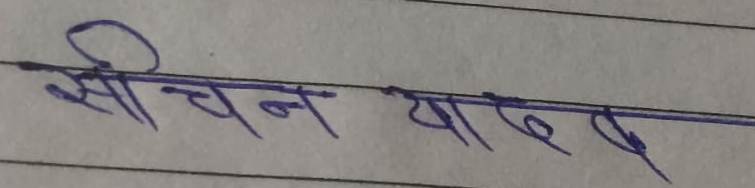 सचिन यादव